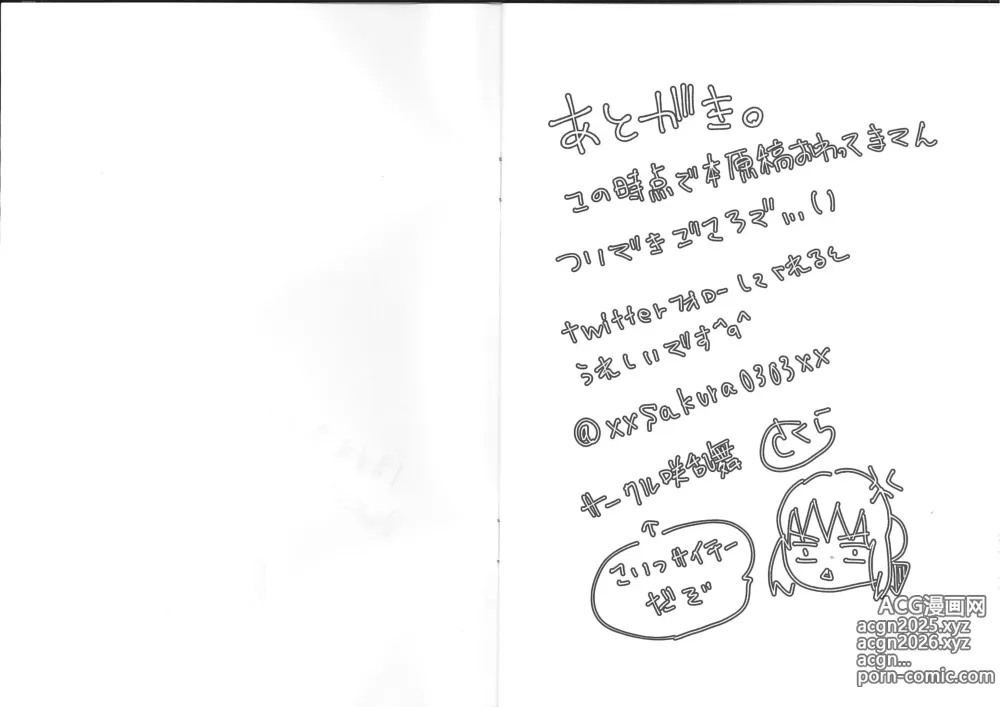 あとがき。
この時点で本原稿おわってきてん
ついできごころで…()
twitterフォローしてくれると
うれしいです^q^
@xxSakura0303xx
サークル咲乱舞
さくら
↑
こいっサイテー
だぞ
ACG漫画网
acgn2025.xyz
acgn2026.xyz
acgn...
porn-comic.com